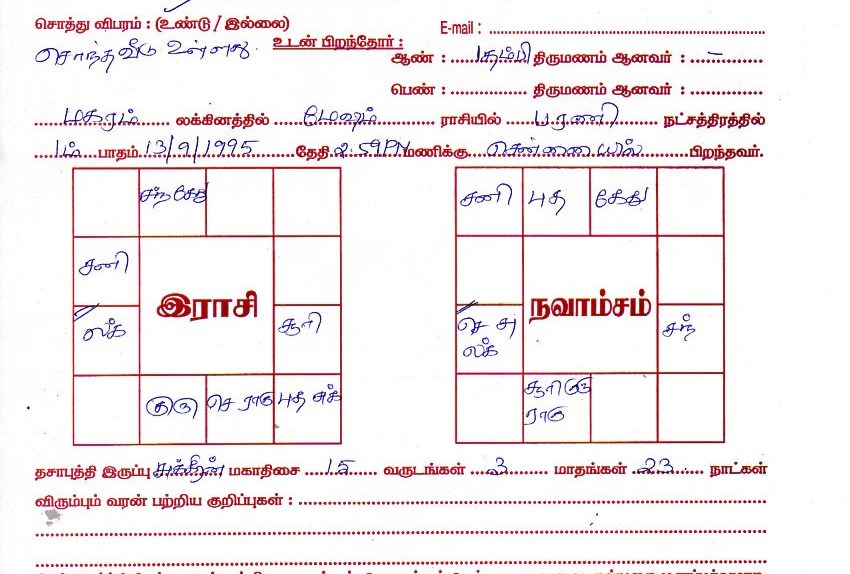 சொத்து விபரம் : (உண்டு / இல்லை)
E-mail :
சொந்த வீடு உள்ளது.
உடன் பிறந்தோர் :
ஆண் : தம்பி திருமணம் ஆனவர் : –
பெண் : திருமணம் ஆனவர் :
மகரம் லக்கினத்தில் மேஷம் ராசியில் பரணி நட்சத்திரத்தில்
1ம் பாதம் 13/9/1995 தேதி 2.59PM மணிக்கு சென்னையில் பிறந்தவர்.
சந் கேது
சனி
இராசி
லக்
சூரி
குரு செ ராகு புத சுக்
சனி புத கேது
நவாம்சம்
செ சு
லக்
சந்
சூரி குரு
ராகு
தசாபுத்தி இருப்பு சுக்கிரன் மகாதிசை 15 வருடங்கள் 3 மாதங்கள் 23 நாட்கள்
விரும்பும் வரன் பற்றிய குறிப்புகள் :